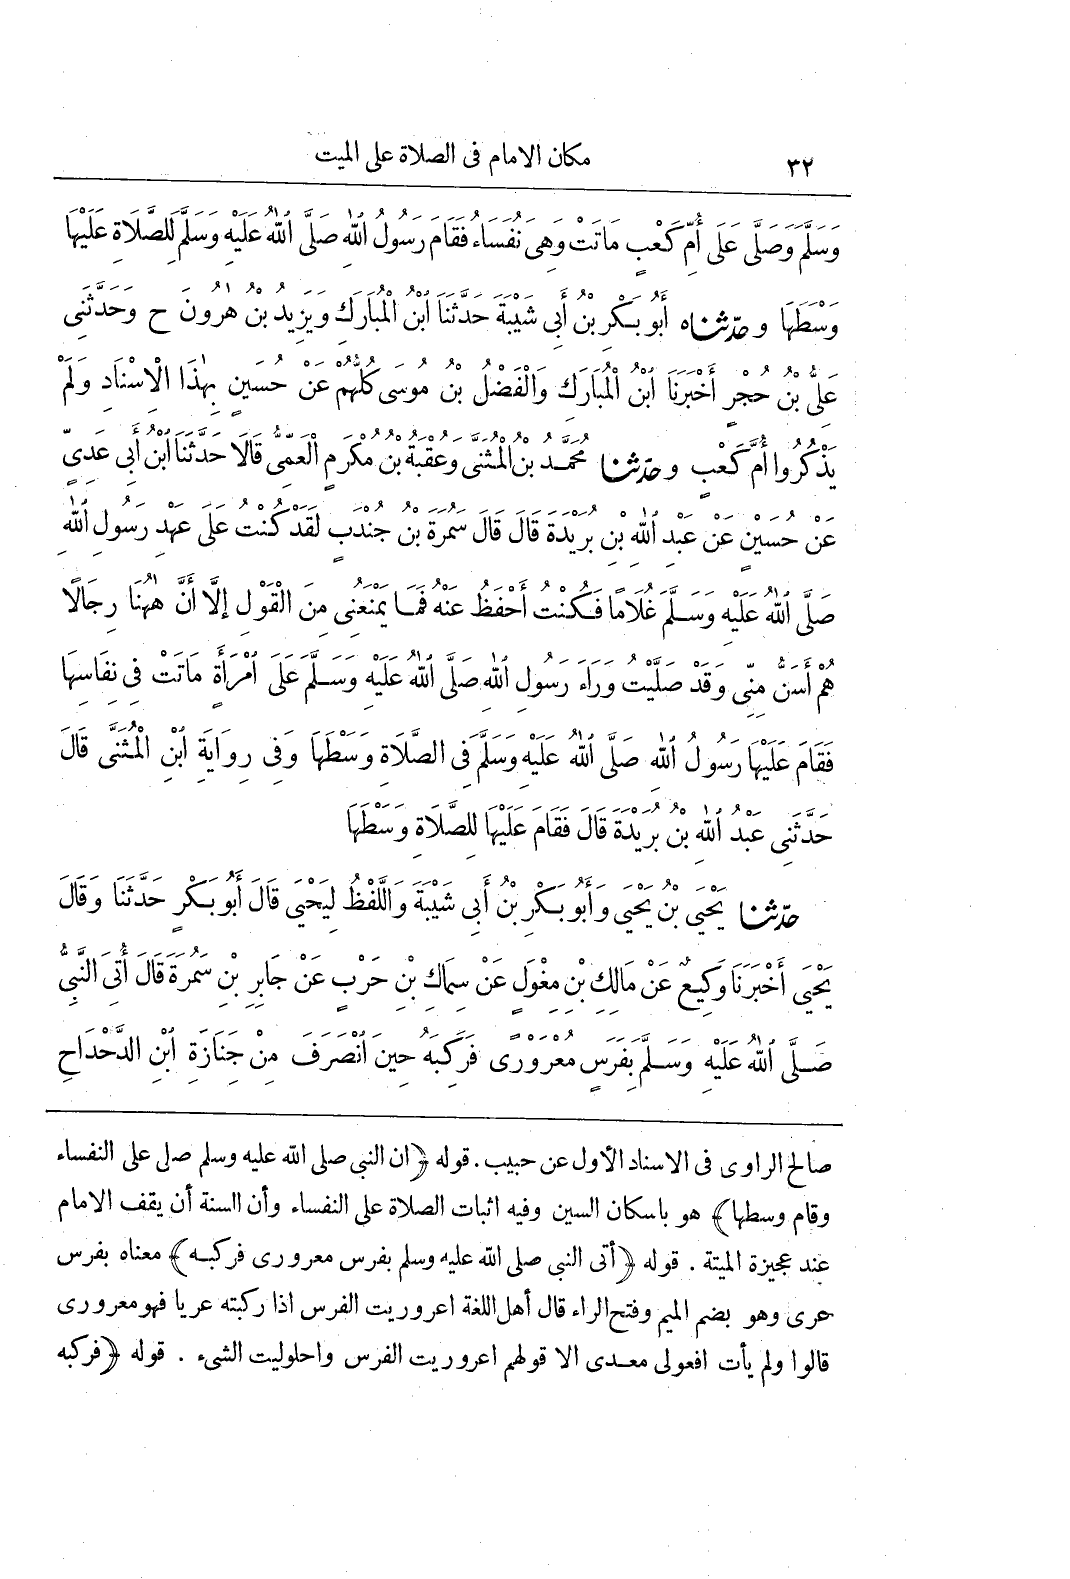 ٣٢ مكان الامام فى الصلاة على الميت
وَسَلَّمَ وَصَلَّى عَلَى أُمِّ كَعْبٍ مَاتَتْ وَهِىَ نُفَسَاءُ فَقَامَ رَسُولُ اللهِ صَلَّى اللهُ عَلَيْهِ وَسَلَّمَ لِلصَّلَاةِ عَلَيْهَا
وَسْطَهَا و حَدَّثَنَاهُ أَبُو بَكْرِ بْنُ أَبِى شَيْبَةَ حَدَّثَنَا ابْنُ الْمُبَارَكِ وَيَزِيدُ بْنُ هٰرُونَ ح وَحَدَّثَنِى
عَلِىُّ بْنُ حُجْرٍ أَخْبَرَنَا ابْنُ الْمُبَارَكِ وَالْفَضْلُ بْنُ مُوسَى كُلُّهُمْ عَنْ حُسَيْنٍ بِهٰذَا الْاِسْنَادِ وَلَمْ
يَذْكُرُوا أُمَّ كَعْبٍ و حَدَّثَنَا مُحَمَّدُ بْنُ الْمُثَنَّى وَعُقْبَةُ بْنُ مُكْرَمٍ الْعَمِّىُّ قَالَا حَدَّثَنَا ابْنُ أَبِى عَدِىٍّ
عَنْ حُسَيْنٍ عَنْ عَبْدِ اللهِ بْنِ بُرَيْدَةَ قَالَ قَالَ سَمُرَةُ بْنُ جُنْدَبٍ لَقَدْ كُنْتُ عَلَى عَهْدِ رَسُولِ اللهِ
صَلَّى اللهُ عَلَيْهِ وَسَلَّمَ غُلَامًا فَكُنْتُ أَحْفَظُ عَنْهُ فَمَا يَمْنَعُنِى مِنَ الْقَوْلِ إِلَّا أَنَّ هٰهُنَا رِجَالًا
هُمْ أَسَنُّ مِنِّى وَقَدْ صَلَّيْتُ وَرَاءَ رَسُولِ اللهِ صَلَّى اللهُ عَلَيْهِ وَسَلَّمَ عَلَى امْرَأَةٍ مَاتَتْ فِى نِفَاسِهَا
فَقَامَ عَلَيْهَا رَسُولُ اللهِ صَلَّى اللهُ عَلَيْهِ وَسَلَّمَ فِى الصَّلَاةِ وَسْطَهَا وَفِى رِوَايَةِ ابْنِ الْمُثَنَّى قَالَ
حَدَّثَنِى عَبْدُ اللهِ بْنُ بُرَيْدَةَ قَالَ فَقَامَ عَلَيْهَا لِلصَّلَاةِ وَسْطَهَا
حَدَّثَنَا يَحْيَى بْنُ يَحْيَى وَأَبُو بَكْرِ بْنُ أَبِى شَيْبَةَ وَاللَّفْظُ لِيَحْيَى قَالَ أَبُو بَكْرٍ حَدَّثَنَا وَقَالَ
يَحْيَى أَخْبَرَنَا وَكِيعٌ عَنْ مَالِكِ بْنِ مِغْوَلٍ عَنْ سِمَاكِ بْنِ حَرْبٍ عَنْ جَابِرِ بْنِ سَمُرَةَ قَالَ أُتِىَ النَّبِىُّ
صَلَّى اللهُ عَلَيْهِ وَسَلَّمَ بِفَرَسٍ مُعْرَوْرًى فَرَكِبَهُ حِينَ انْصَرَفَ مِنْ جَنَازَةِ ابْنِ الدَّحْدَاحِ
صالح الراوى فى الاسناد الأول عن حبيب . قوله ﴿ان النبى صلى الله عليه وسلم صلى على النفساء
وقام وسطها﴾ هو باسكان السين وفيه اثبات الصلاة على النفساء وأن السنة أن يقف الامام
عند عجيزة الميتة . قوله ﴿أتى النبى صلى الله عليه وسلم بفرس معرورى فركبه﴾ معناه بفرس
عرى وهو بضم الميم وفتح الراء قال أهل اللغة اعروريت الفرس اذا ركبته عريا فهو معرورى
قالوا ولم يأت افعولى معدى الا قولهم اعروريت الفرس واحلوليت الشىء . قوله ﴿فركبه